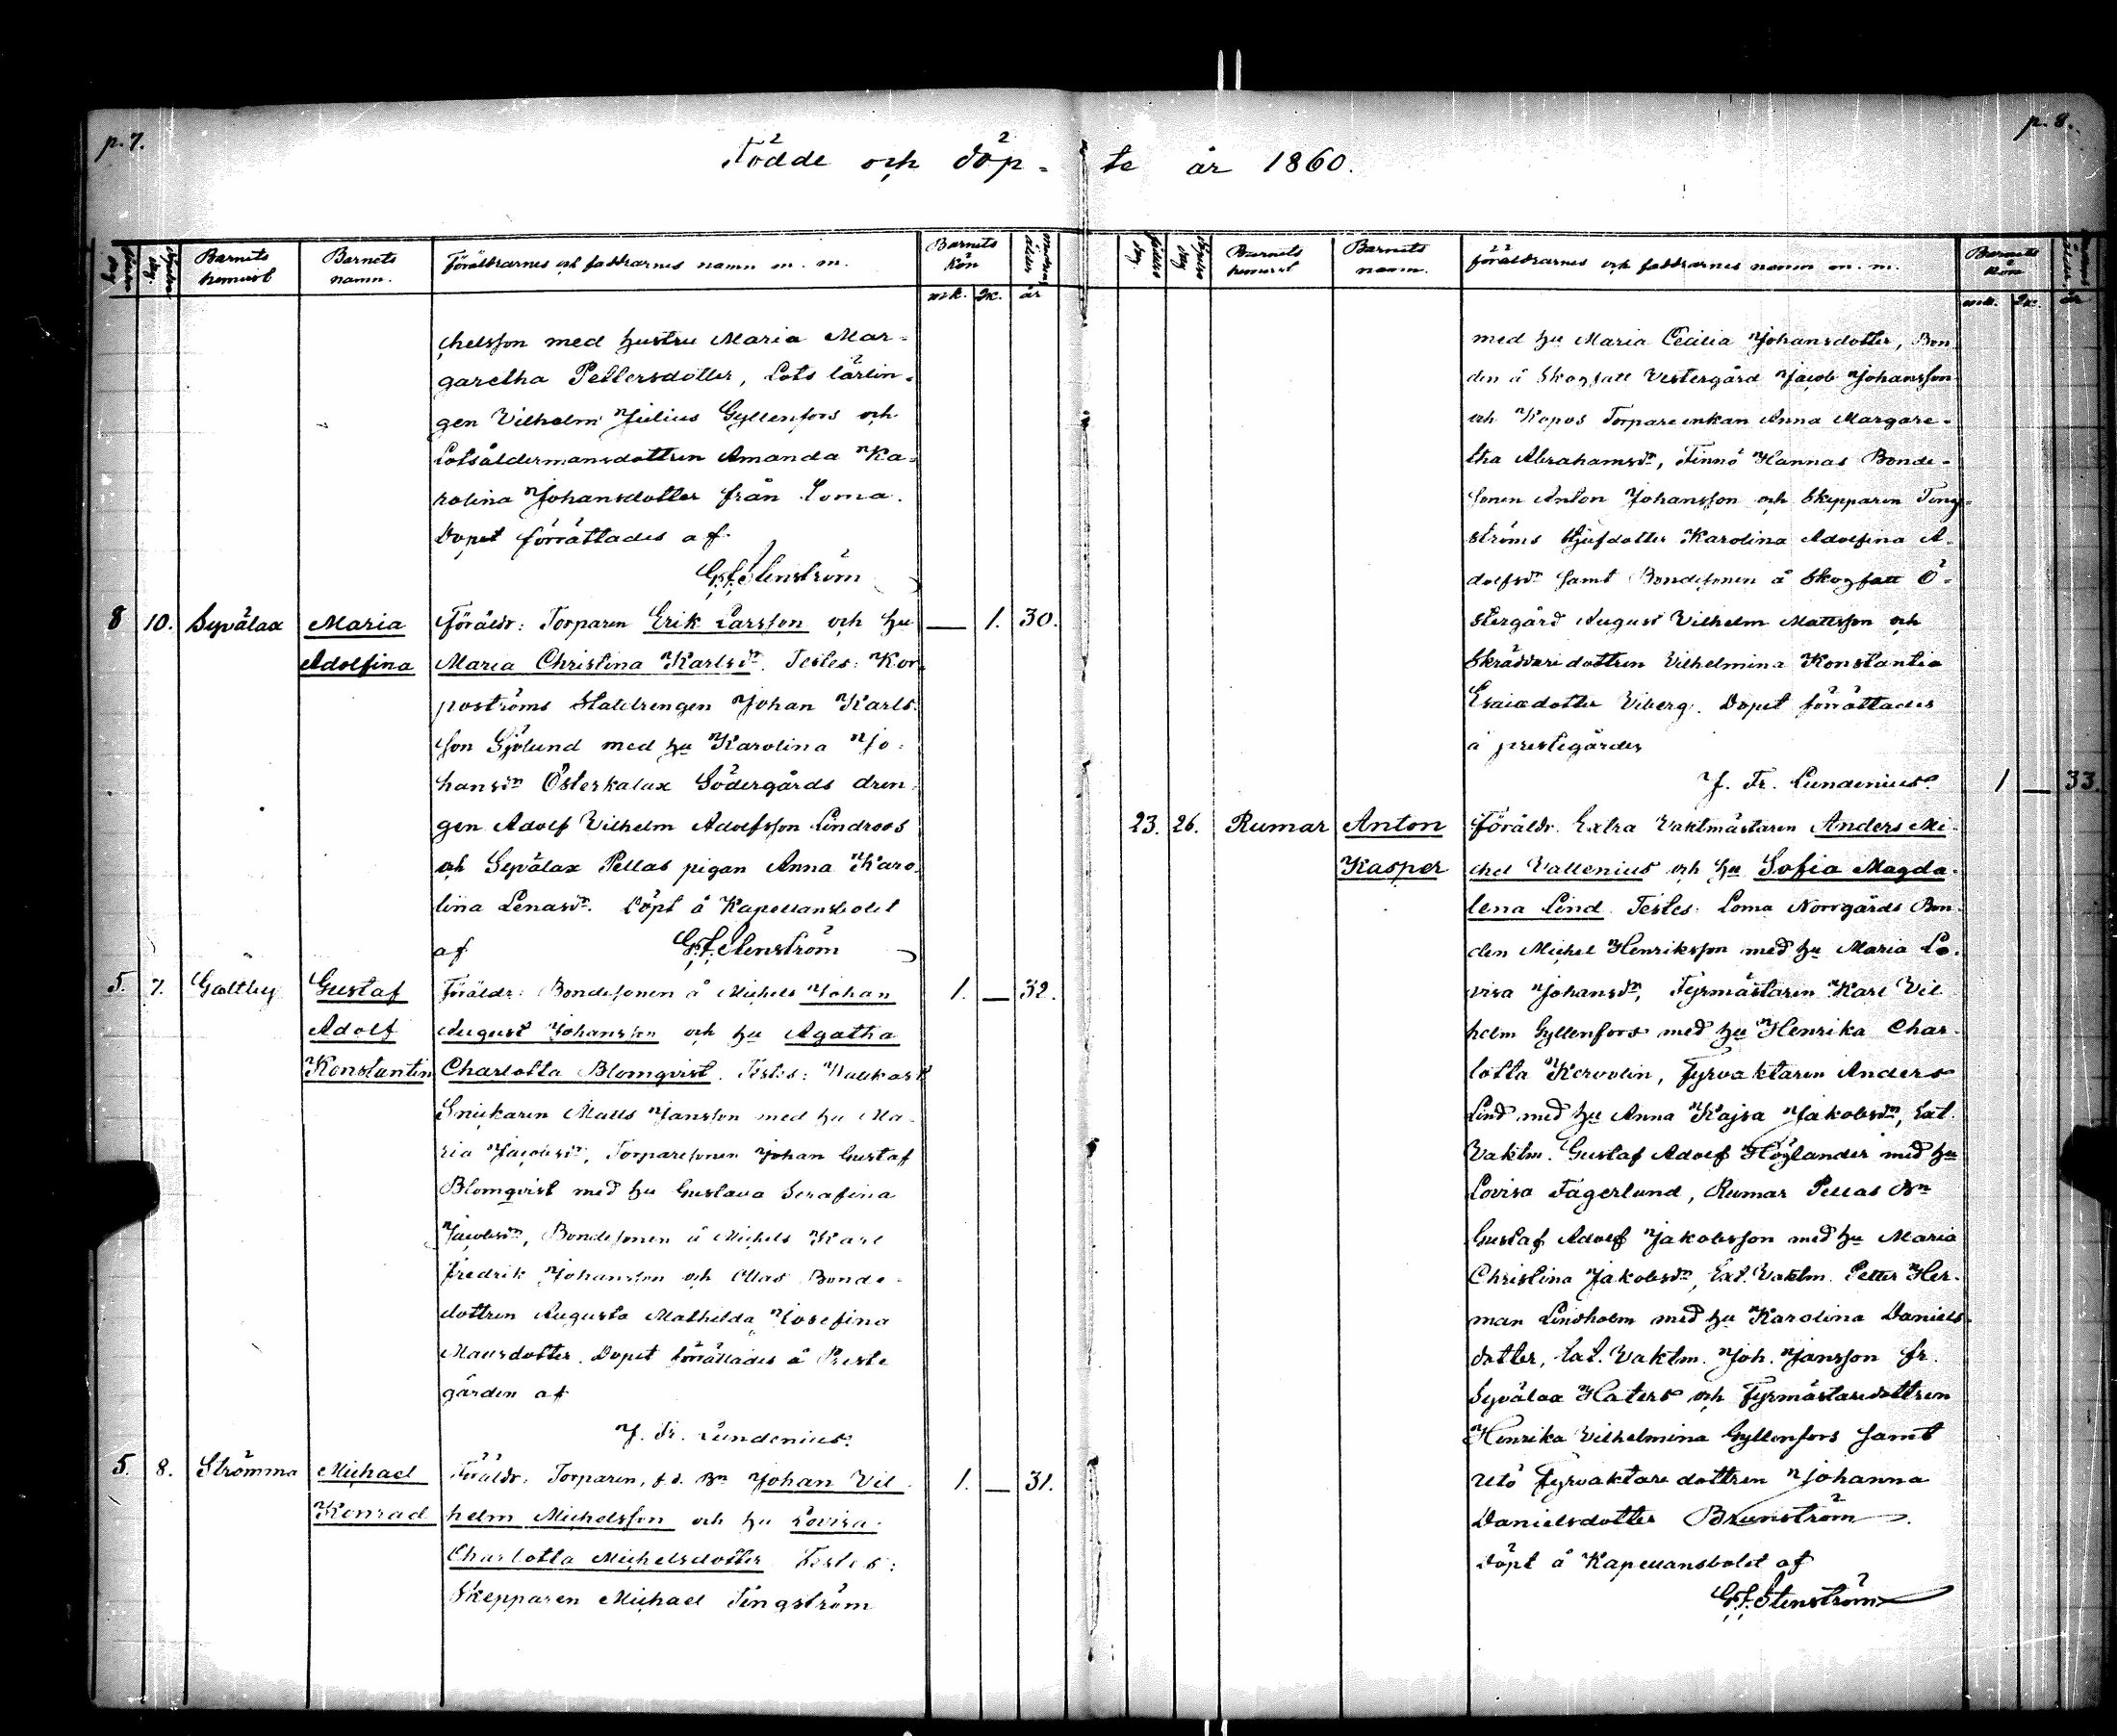 p. 7.
p. 8.
Födde och döp- te år 1860.
Barnets hemvist
Barnets namn.
Föräldrarnes och faddrarnes namn m. m.
Barnets kön
mk. qk. år
chelsson med hustru Maria Mar-
garetha Pettersdotter, Lots lärlin-
gen Vilhelm Julius Gyllenfors och
Lotsåldermansdottren Amanda Ka-
rolina Johansdotter från Loma.
Dopet förrättades af
G.F. Stenström
8 10. Syvälax Maria Föräldr: Torparen Erik Larsson och hu — 1. 30.
Adolfina Maria Christina Karlsdr. Testes: Kor-
poströms Stalldrengen Johan Karls-
son Sjölund med hu Karolina Jo-
hansdr Österkalax Södergårds dren-
gen Adolf Vilhelm Adolfsson Lindroos
och Syvälax Pellas pigan Anna Karo-
lina Lenasdr. Döpt å Kapellansbolet
af G.F. Stenström
5. 7. Galtby Gustaf Föräldr: Bondesonen å Michels Johan 1. — 32.
Adolf August Johansson och hu Agatha
Konstantin Charlotta Blomqvist. Testes:
Snickaren Matts Jansson med hu Ma-
ria Jacobsdr, Torparesonen Johan Gustaf
Blomqvist med hu Gustava Serafina
Jacobsdr, Bondesonen å Michels Karl
Fredrik Johansson och Ollas Bonde-
dottren Augusta Mathilda Josefina
Mansdotter. Dopet förrättades å Preste
gården af
J. Fr. Lundenius.
5. 8. Strömma Michael Föräldr: Torparen, f.d. Bn Johan Vil- 1. — 31.
Konrad helm Michelsson och hu Lovisa
Charlotta Michelsdotter Testes:
Skepparen Michael Tingström
Barnets hemvist
Barnets namn.
Föräldrarnes och faddrarnes namn m. m.
Barnets kön
mk. qk. år
med hu Maria Cecilia Johansdotter, Bon-
den å Skogfall Vestergård Jacob Johansson
och Kopos Torpareenkan Anna Margare-
tha Abrahamsdr, Finnö Hannas Bonde-
sonen Anton Johansson och Skepparen Ting-
ströms Styfdotter Karolina Adolfina A-
dolfsdr samt Bondesonen å Skogfall Ö-
stergård August Vilhelm Mattsson och
Skräddaredottren Vilhelmina Konstantia
Esaiadotter Viberg. Dopet förrättades
å prestegården
J. Fr. Lundenius. 1 — 33.
23. 26. Rumar Anton Föräldr. Extra Vaktmästaren Anders Mi-
Kasper chel Vallenius och hu Sofia Magda-
lena Lind. Testes: Loma Norrgårds Bon-
den Michel Henriksson med hu Maria Lo-
visa Johansdr, Fyrmästaren Karl Vil-
helm Gyllenfors med hu Henrika Char-
lotta Korvolin, Fyrvaktaren Anders
Lind med hu Anna Kajsa Jakobsdr, Ext.
Vaktm. Gustaf Adolf Höglander med hu
Lovisa Fagerlund, Rumar Pellas Bn
Gustaf Adolf Jakobsson med hu Maria
Christina Jakobsdr, Ext. Vaktm. Petter Her-
man Lindholm med hu Karolina Daniels-
dotter, Ext. Vaktm. Joh. Jansson fr.
Syvälax Haters och Fyrmästaredottren
Henrika Vilhelmina Gyllenfors samt
Utö Fyrvaktaredottren Johanna
Danielsdotter Brunström.
Döpt å Kapellansbolet af
G.F. Stenström